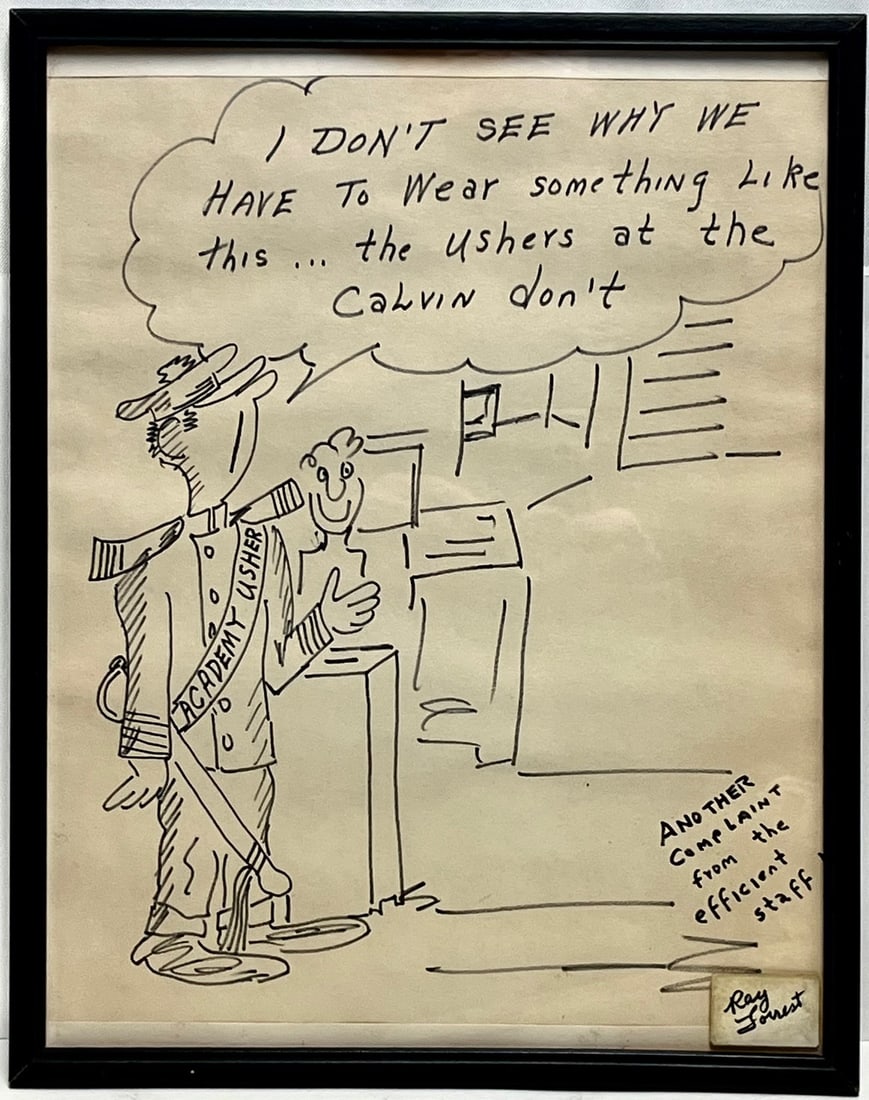 I DON'T SEE WHY WE
HAVE TO Wear something Like
this ... the ushers at the
CALVIN don't
ACADEMY USHER
ANOTHER
COMPLAINT
from the
efficient
staff
Ray
Forrest